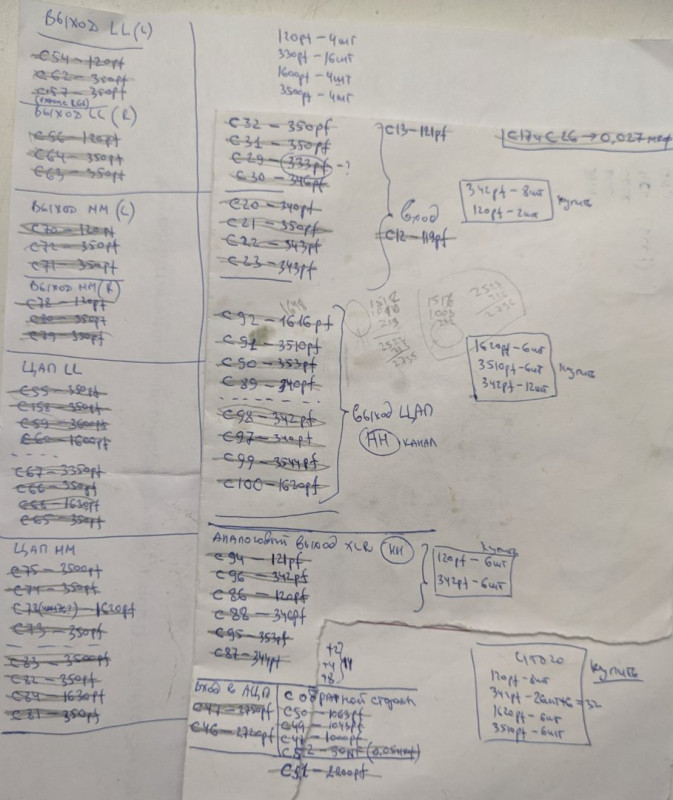 ВЫХОД LL (L)
C54 – 120pf
C62 – 350pf
C57 – 350pf
ВЫХОД LL (R)
C56 – 120pf
C64 – 350pf
C63 – 350pf
ВЫХОД НМ (L)
C70 – 120pf
C72 – 350pf
C71 – 350pf
ВЫХОД НМ (R)
C78 – 120pf
C80 – 350pf
C79 – 350pf
ЦАП LL
C55 – 350pf
C158 – 350pf
C59 – 3600pf
C60 – 1600pf
C67 – 3350pf
C66 – 350pf
C68 – 1630pf
C65 – 350pf
ЦАП НМ
C75 – 2500pf
C74 – 350pf
C73 – 350pf
C83 – 3500pf
C82 – 350pf
C84 – 1630pf
C81 – 350pf
120pf – 4шт
330pf – 16шт
1600pf – 4шт
3500pf – 4шт
C32 – 350pf
C31 – 350pf
C29 – 333pf – ?
C30 – 346pf
C20 – 340pf
C21 – 350pf
C22 – 343pf
C23 – 343pf
C13 – 121pf
ВХОД
C12 – 119pf
C17 и C26 → 0,027 мкф
342pf – 8шт
120pf – 2шт
купить
C92 – 1616pf
C91 – 3510pf
C90 – 353pf
C89 – 340pf
C98 – 342pf
C97 – 340pf
C99 – 3544pf
C100 – 1620pf
ВЫХОД ЦАП
НН КАНАЛ
1620pf – 6шт
3510pf – 6шт
342pf – 12шт
купить
АНАЛОГОВЫЙ ВЫХОД XLR НН
C94 – 121pf
C96 – 342pf
C86 – 120pf
C88 – 346pf
C95 – 353pf
C87 – 344pf
купить
120pf – 6шт
342pf – 6шт
+2
+4
+8
14
ВХОД В АЦП
C47 – 2750pf
C46 – 2720pf
С ОБРАТНОЙ СТОРОНЫ
C50 – 1063pf
C49 – 1043pf
C48 – 1000pf
C51 – 2200pf
ИТОГО
120pf – 8шт
342pf – 26шт+6 = 32
1620pf – 6шт
3510pf – 6шт
купить